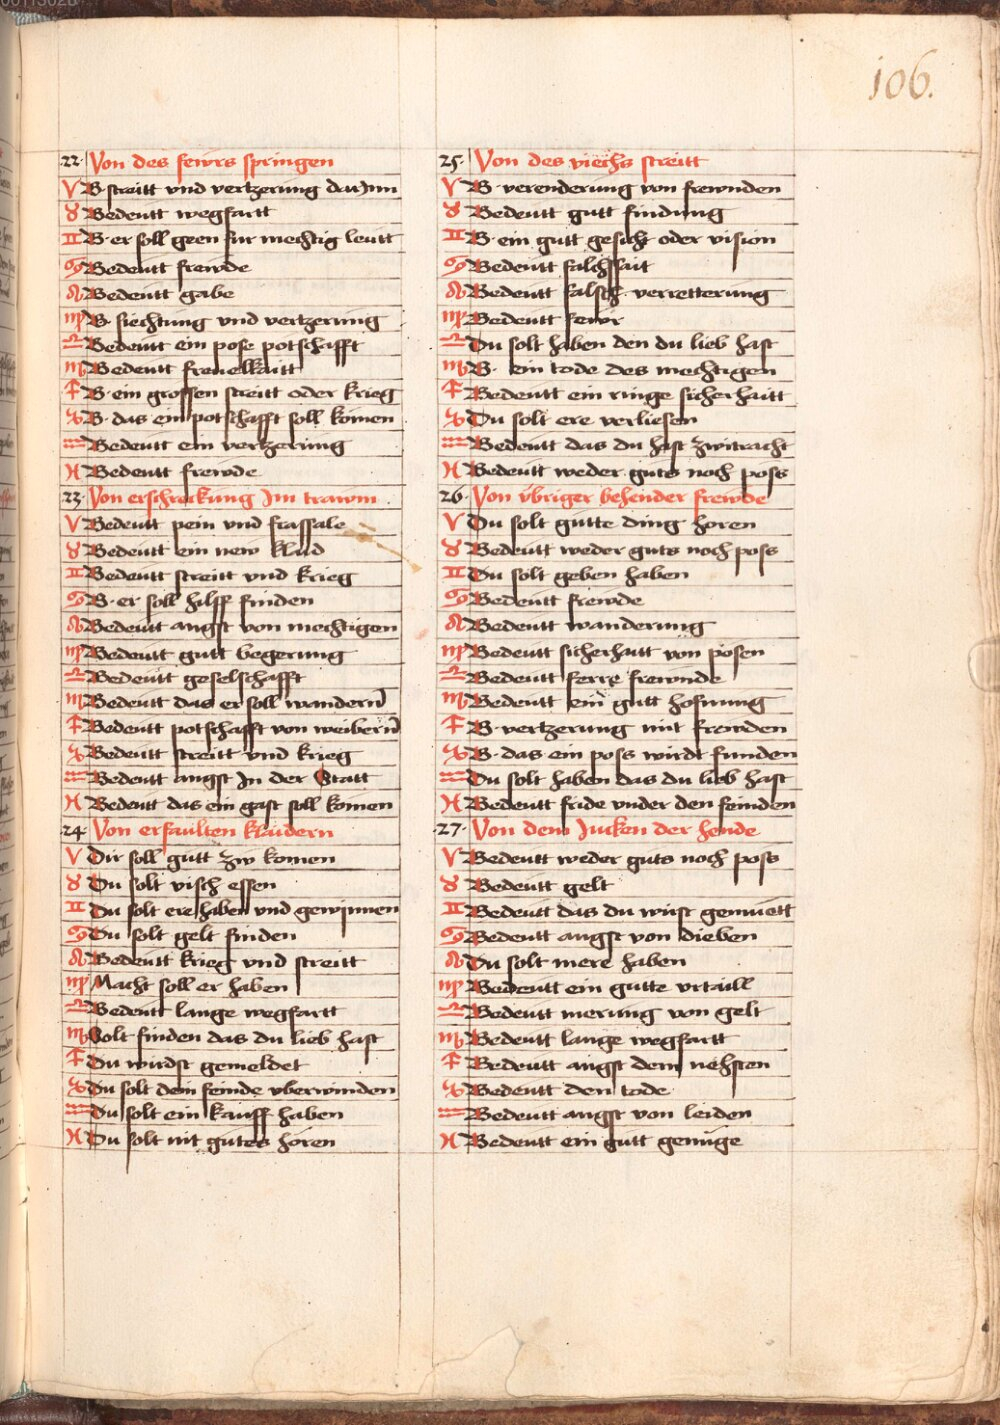 106.
22· Von des fewrs springen
♈ B· streitt vnd vertzerung darJnn
♉ Bedeutt wegfartt
♊ B· er soll geen fur mechtig leutt
♋ Bedeutt frewde
♌ Bedeutt gabe
♍ B· siechtung vnd vertzerung
♎ Bedeutt ein pose potschafft
♏ Bedeutt freuelkaitt
♐ B· ein grossen streitt oder krieg
♑ B· das ein potschafft soll komen
♒ Bedeutt ein vertzerung
♓ Bedeutt frewde
23· Von erschreckung Jm trawm
♈ Bedeutt pein vnd frassale
♉ Bedeutt ein new klaid
♊ Bedeutt streitt vnd krieg
♋ B· er soll hilff finden
♌ Bedeutt angst von mechtigen
♍ Bedeutt gutt begerung
♎ Bedeutt geselschafft
♏ Bedeutt das er soll wandern
♐ Bedeutt potschafft von weibern
♑ Bedeutt streitt vnd krieg
♒ Bedeutt angst Jn der Statt
♓ Bedeutt das ein gast soll komen
24· Von erfaulten klaidern
♈ Dir soll gutt zw komen
♉ Du solt visch essen
♊ Du solt ere haben vnd gewinnen
♋ Du solt gelt finden
♌ Bedeutt krieg vnd streitt
♍ Macht soll er haben
♎ Bedeutt lange wegfartt
♏ Solt finden das du lieb hast
♐ Du wirdst gemeldet
♑ Du solt dein feinde vberwinden
♒ Du solt ein kauff haben
♓ Du solt nit gutes horen
25· Von des viechs streitt
♈ B· verenderung von frewnden
♉ Bedeutt gutt findung
♊ B· ein gutt gesicht oder vision
♋ Bedeutt falschait
♌ Bedeutt falsch verretterung
♍ Bedeutt fewr
♎ Du solt haben den du lieb hast
♏ B· ein tode des mechtigen
♐ Bedeutt ein ringe sicherhaitt
♑ Du solt ere verliesen
♒ Bedeutt das du hast zwitracht
♓ Bedeutt weder guts noch poss
26· Von vbriger behender frewde
♈ Du solt gutte ding horen
♉ Bedeutt weder guts noch poss
♊ Du solt geben haben
♋ Bedeutt frewde
♌ Bedeutt wanderung
♍ Bedeutt sicherhaitt von posen
♎ Bedeutt ferre frewnde
♏ Bedeutt ein gutt hofnung
♐ B· vertzerung mit frewden
♑ B· das ein poss wirdt funden
♒ Du solt haben das du lieb hast
♓ Bedeutt fride vnder den feinden
27· Von dem Jucken der hende
♈ Bedeutt weder guts noch poss
♉ Bedeutt gelt
♊ Bedeutt das du wirst gemuett
♋ Bedeutt angst von dieben
♌ Du solt mere haben
♍ Bedeutt ein gutte vrtaill
♎ Bedeutt merung von gelt
♏ Bedeutt lange wegfartt
♐ Bedeutt angst dem nehsten
♑ Bedeutt den tode
♒ Bedeutt angst von leiden
♓ Bedeutt ein gutt genuge